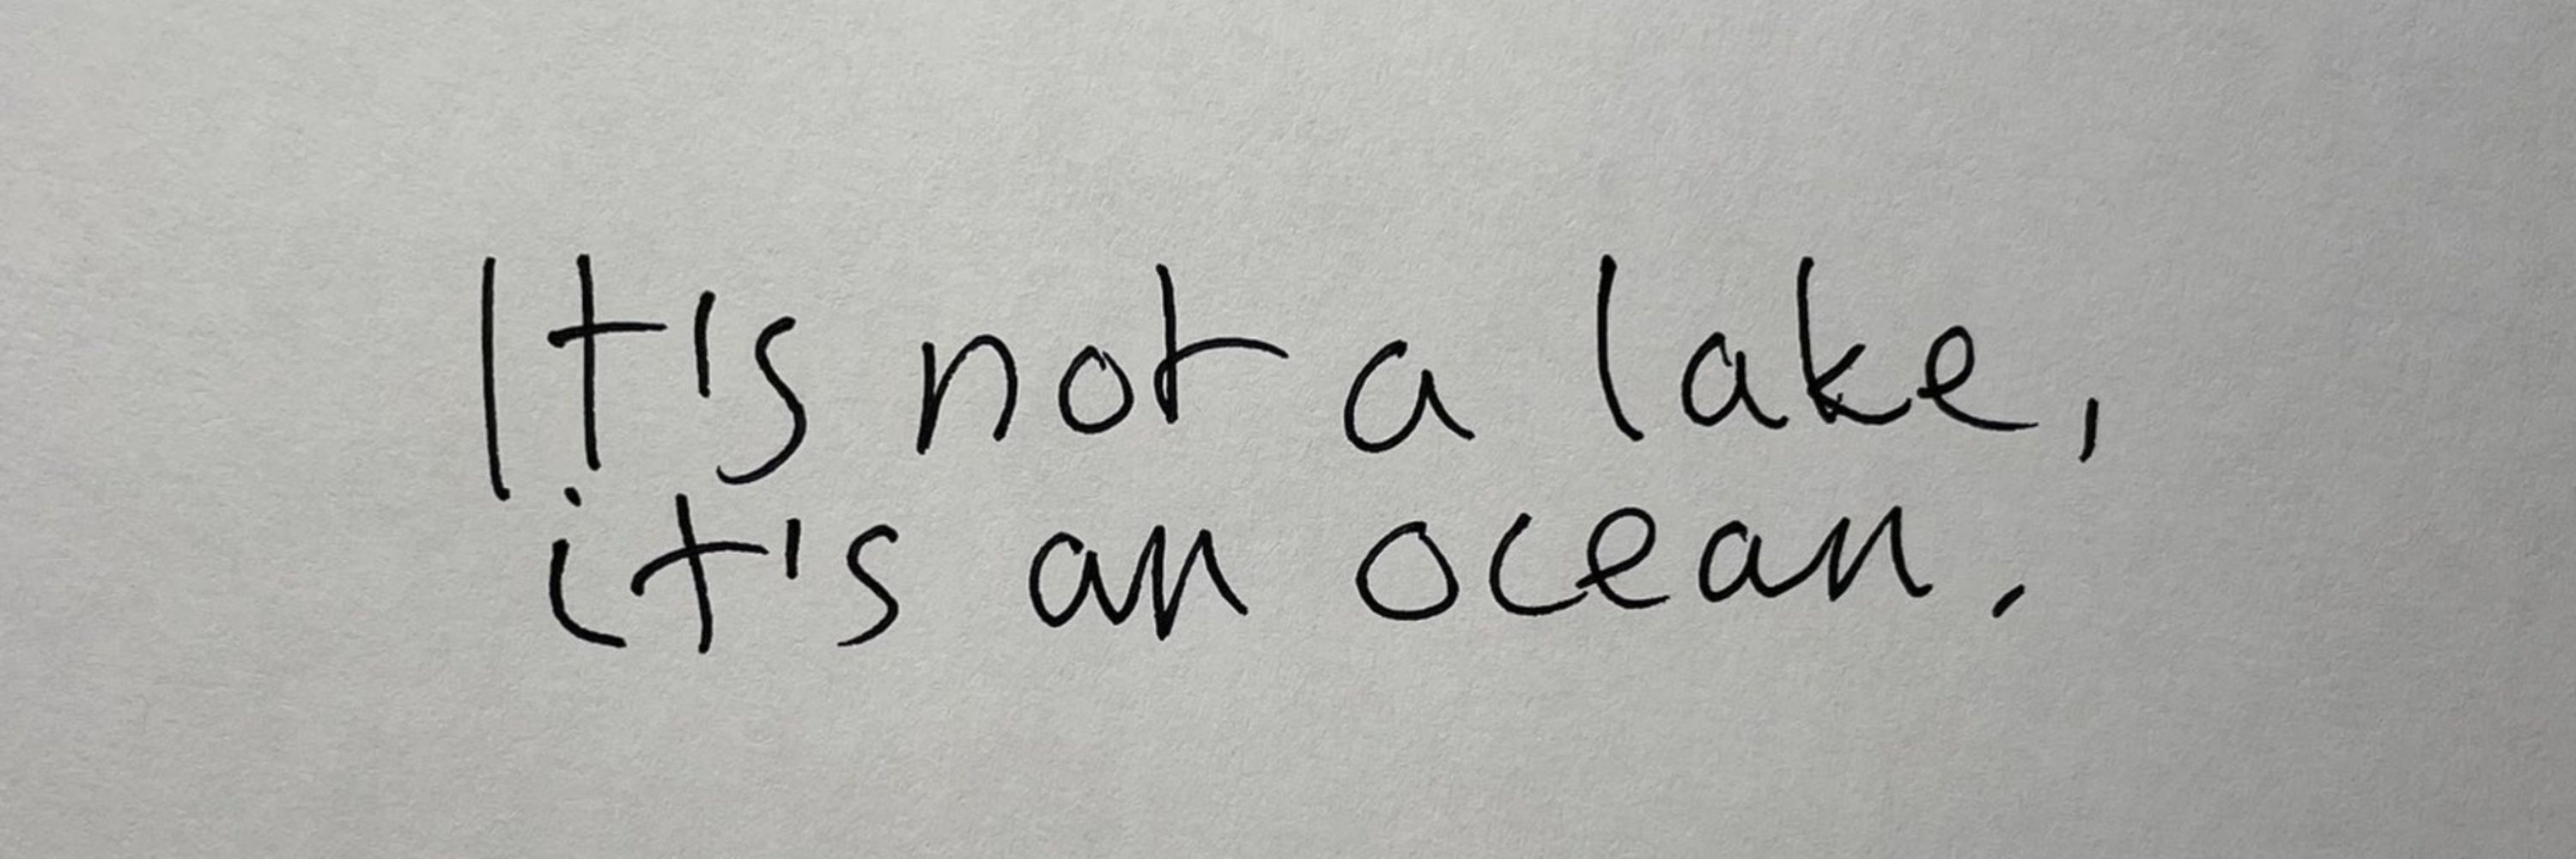 It's not a lake,
it's an ocean.